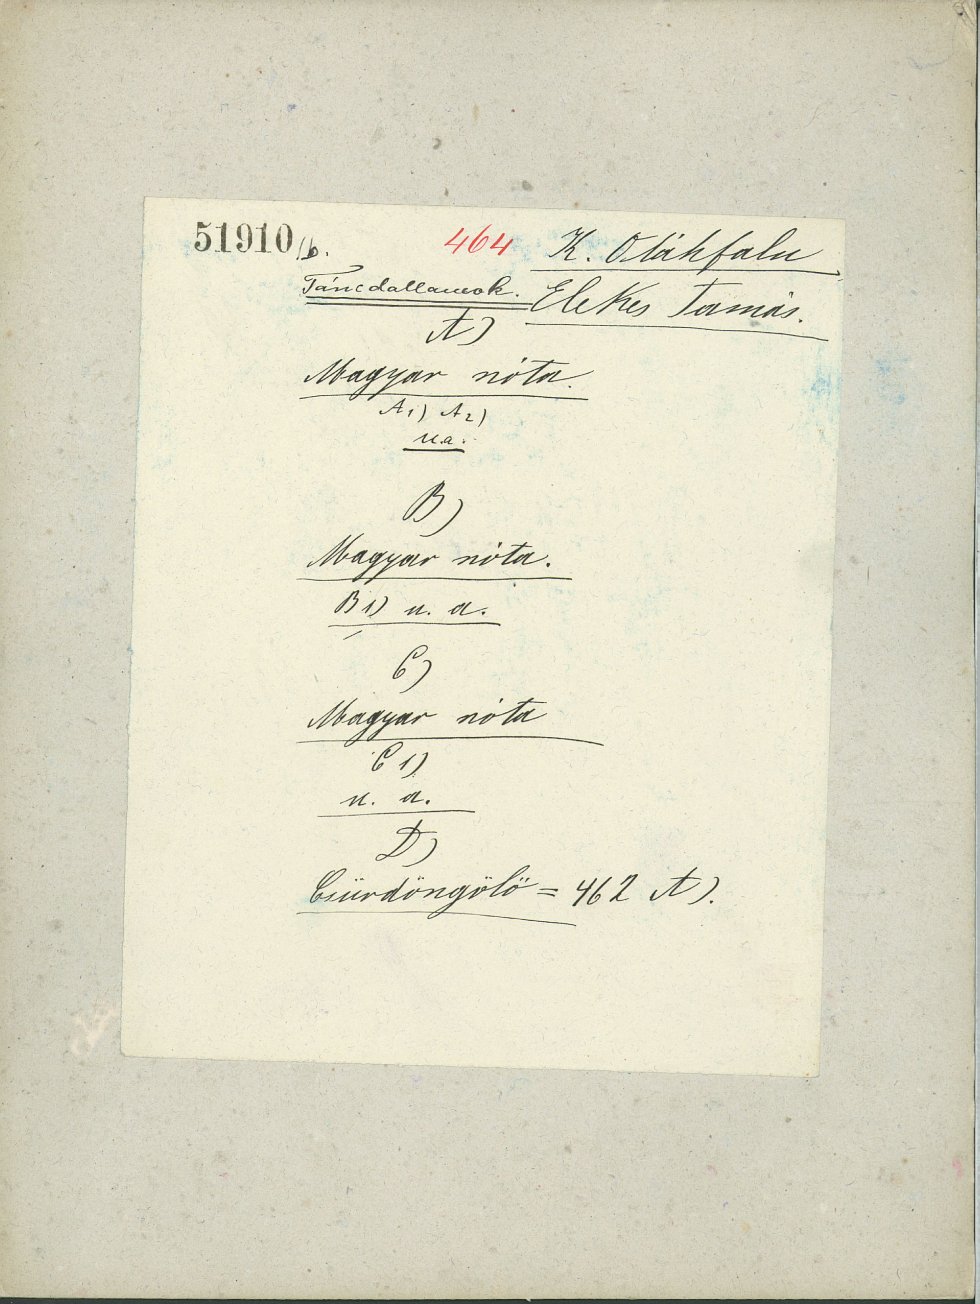 51910/b.
464
K. Oláhfalu
Táncdallamok.
Elekes Tamás.
A)
Magyar nóta.
A1) A2)
u.a.
B)
Magyar nóta.
B1) u. a.
C)
Magyar nóta
C1)
u. a.
D)
Csürdöngölö = 462 A).